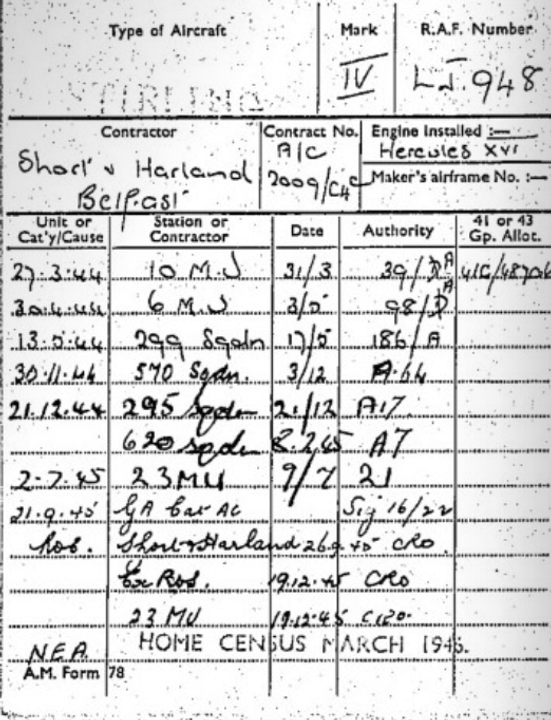 Type of Aircraft Mark R.A.F. Number
STIRLING IV LJ.948
Contractor Contract No. Engine Installed :—
Short & Harland A/C Hercules XVI
Belfast 2009/C4C Maker's airframe No. :—
Unit or Cat'y/Cause Station or Contractor Date Authority 41 or 43 Gp. Allot.
27.3.44 10 M.U 31/3 39/DA 41G/
30.4.44 6 M.U 3/5 98/DA
13.5.44 299 Sqdn 17/5 186/A
30.11.44 570 Sqdn. 3/12 A.64
21.12.44 295 sqdn 21/12 A17
620 sqdn 8.2.45 A7
2.7.45 23 MU 9/7 21
21.9.45 GA Cat AC Sig 16/22
Ros. Short & Harland 26.9.45 CRO
Ex Ros. 19.12.45 CRO
23 MU 19.12.45
HOME CENSUS MARCH 1946.
N.E.A.
A.M. Form 78